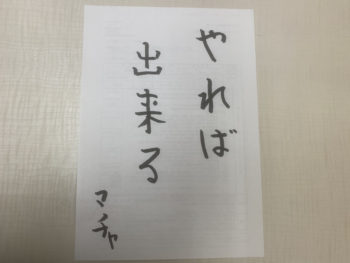 やれば
出来る
マチャ